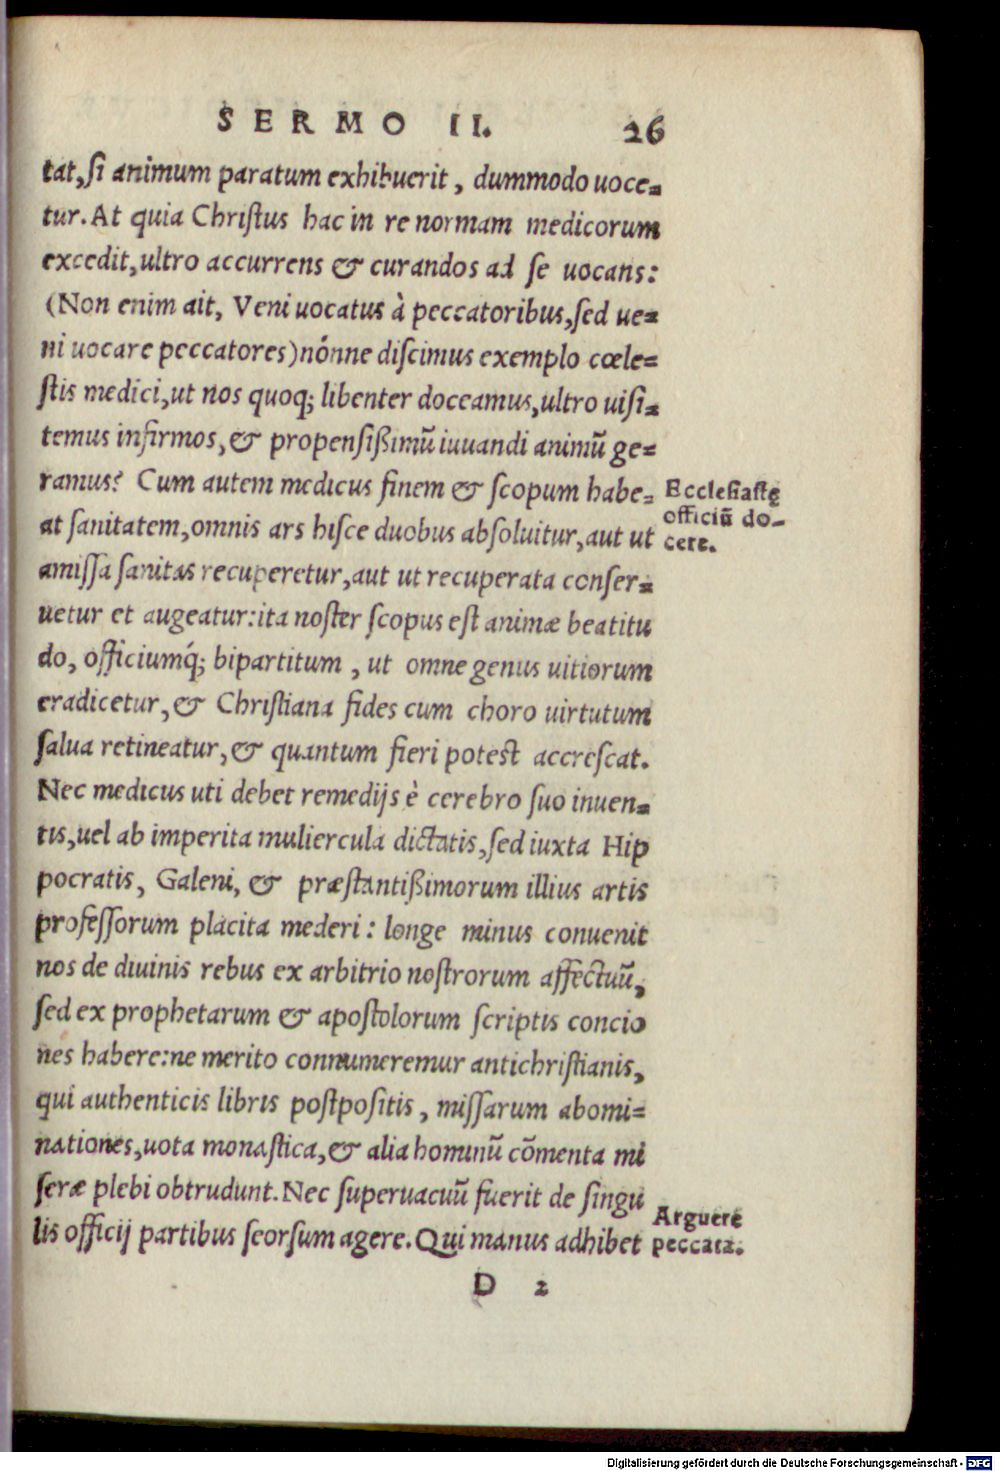 SERMO II. 26
tat,ſi animum paratum exhibuerit, dummodo uoce-
tur. At quia Chriſtus hac in re normam medicorum
excedit,ultro accurrens & curandos ad ſe uocans:
(Non enim ait, Veni uocatus à peccatoribus,ſed ue-
ni uocare peccatores)nónne diſcimus exemplo cœle-
ſtis medici,ut nos quoq; libenter doceamus,ultro uiſi-
temus infirmos,& propenſißimū iuuandi animū ge-
ramus? Cum autem medicus finem & ſcopum habe-
at ſanitatem,omnis ars hiſce duobus abſoluitur,aut ut
amiſſa ſanitas recuperetur,aut ut recuperata conſer-
uetur et augeatur:ita noſter ſcopus eſt animæ beatitu
do, officiumq́; bipartitum , ut omne genus uitiorum
eradicetur,& Chriſtiana fides cum choro uirtutum
ſalua retineatur,& quantum fieri poteſt accreſcat.
Nec medicus uti debet remedijs è cerebro ſuo inuen-
tis,uel ab imperita muliercula dictatis,ſed iuxta Hip
pocratis, Galeni, & præſtantißimorum illius artis
profeſſorum placita mederi: longe minus conuenit
nos de diuinis rebus ex arbitrio noſtrorum affectuū,
ſed ex prophetarum & apoſtolorum ſcriptis concio
nes habere:ne merito connumeremur antichriſtianis,
qui authenticis libris poſtpoſitis, miſſarum abomi-
nationes,uota monaſtica,& alia hominū cōmenta mi
ſeræ plebi obtrudunt. Nec ſuperuacuū fuerit de ſingu
lis officij partibus ſeorſum agere. Qui manus adhibet
D 2
Eccleſiaſtę
officiū do-
cere.
Arguere
peccata.
Digitalisierung gefördert durch die Deutsche Forschungsgemeinschaft - DFG